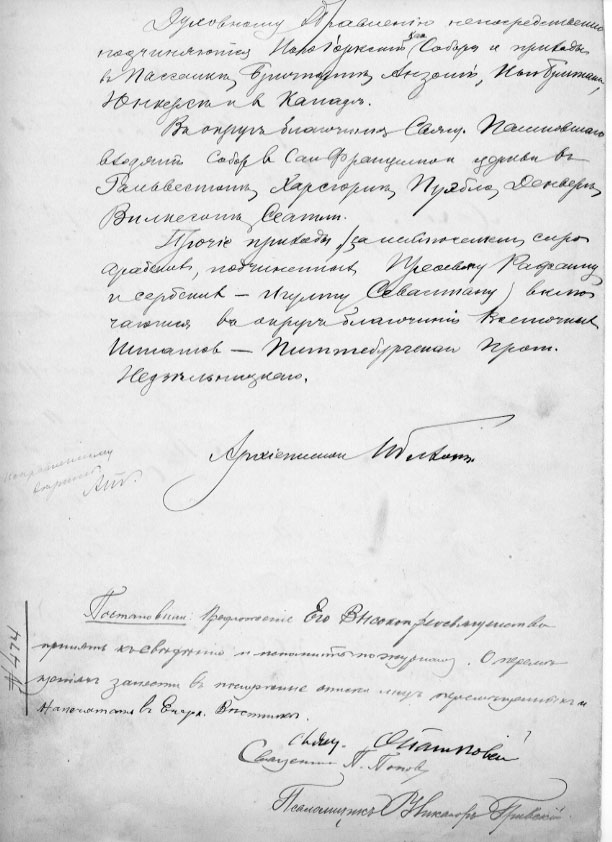 Духовному Правленію непосредственно
подчиняются Нью-Іоркскій Соборъ и приходы
въ Пассаикѣ, Бриджпортѣ, Ансоніи, Нью Бритенѣ,
Юнкерсѣ и въ Канадѣ.
Въ округъ благочинія Свящ. Пашковскаго
входятъ Соборъ въ Сан Франциско и церкви въ
Гальвестонѣ, Хартсгорнѣ, Пуэбло, Денверѣ,
Вилкесонѣ, Сеатли.
Прочіе приходы, (за исключеніемъ сиро-
арабскихъ, подчиненныхъ Преосвящ. Рафаилу,
и сербскихъ – Игумену Севастіану) вклю-
чаются въ округъ благочинія Восточныхъ
Штатовъ – Питтсбургскаго Прот.
Недзѣльницкаго.
Архіепископъ
#474
Постановили: Предложеніе Его Высокопреосвященства
принять къ свѣдѣнію и исполнить по журналу. О перемѣ-
щеніяхъ занести въ послужные списки лицъ перемѣщенныхъ и
напечатать въ Епарх. Вѣстникѣ.
Свящ. Ѳ Пашковскій
Священникъ П. Поповъ
Псаломщикъ Никаноръ Гривскій